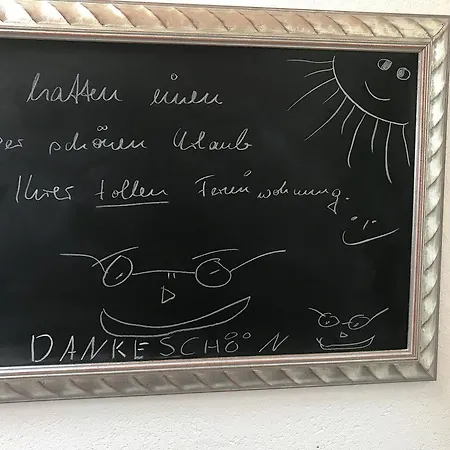 hatten einen
er schönen Urlaub
Ihrer tollen Ferienwohnung.
DANKESCHÖN